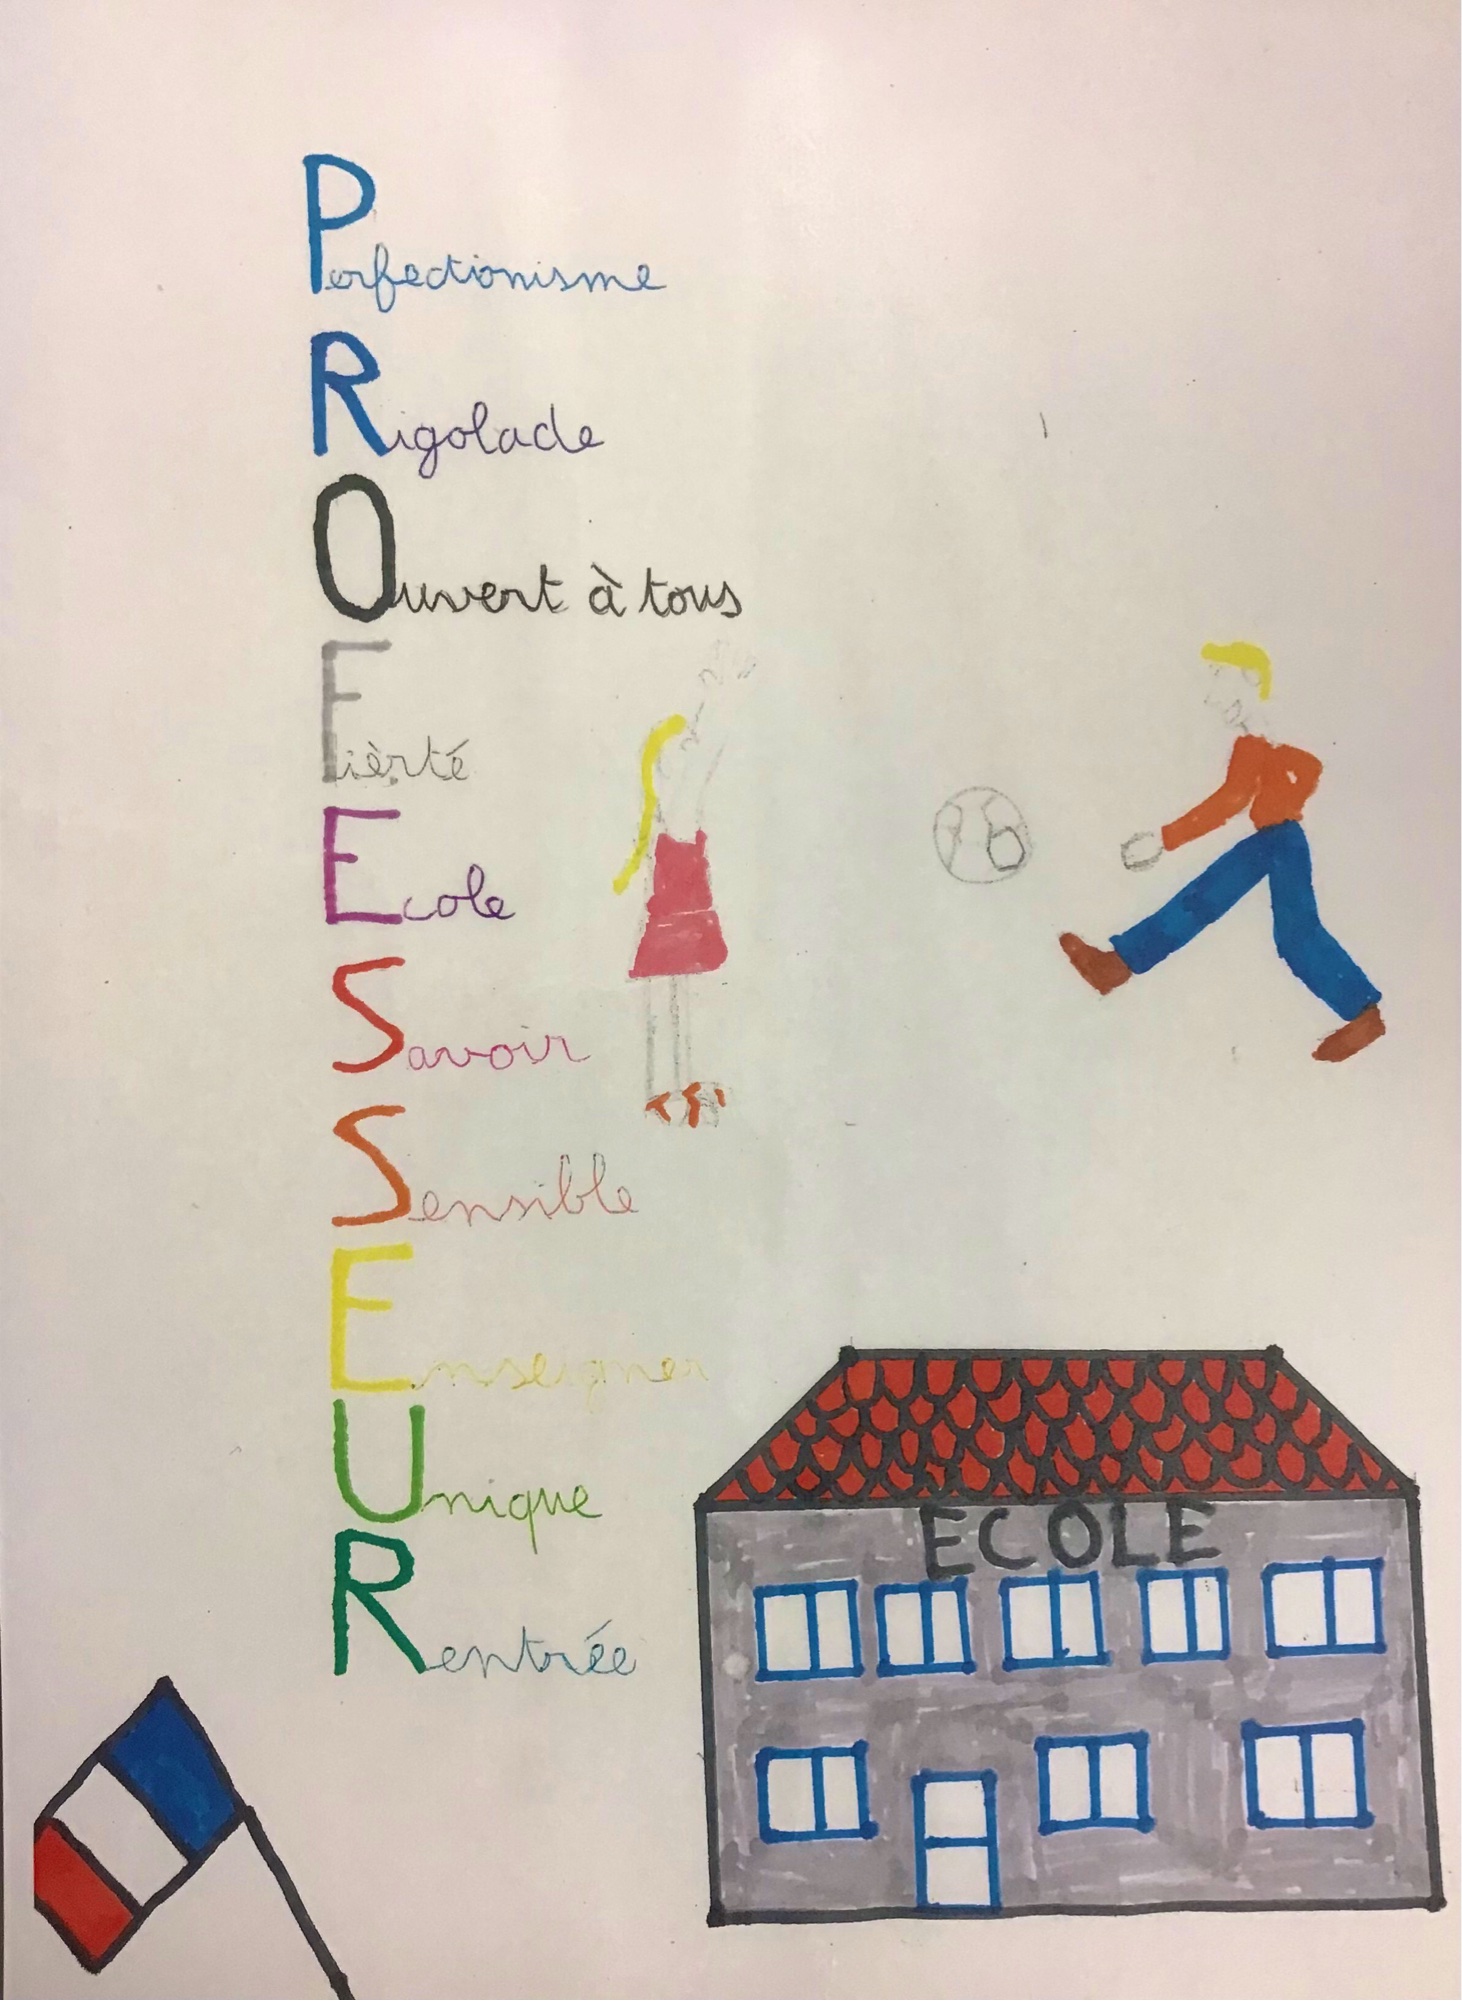 Perfectionisme
Rigolade
Ouvert à tous
Fièrté
Ecole
Savoir
Sensible
Enseigner
Unique
Rentrée
ECOLE